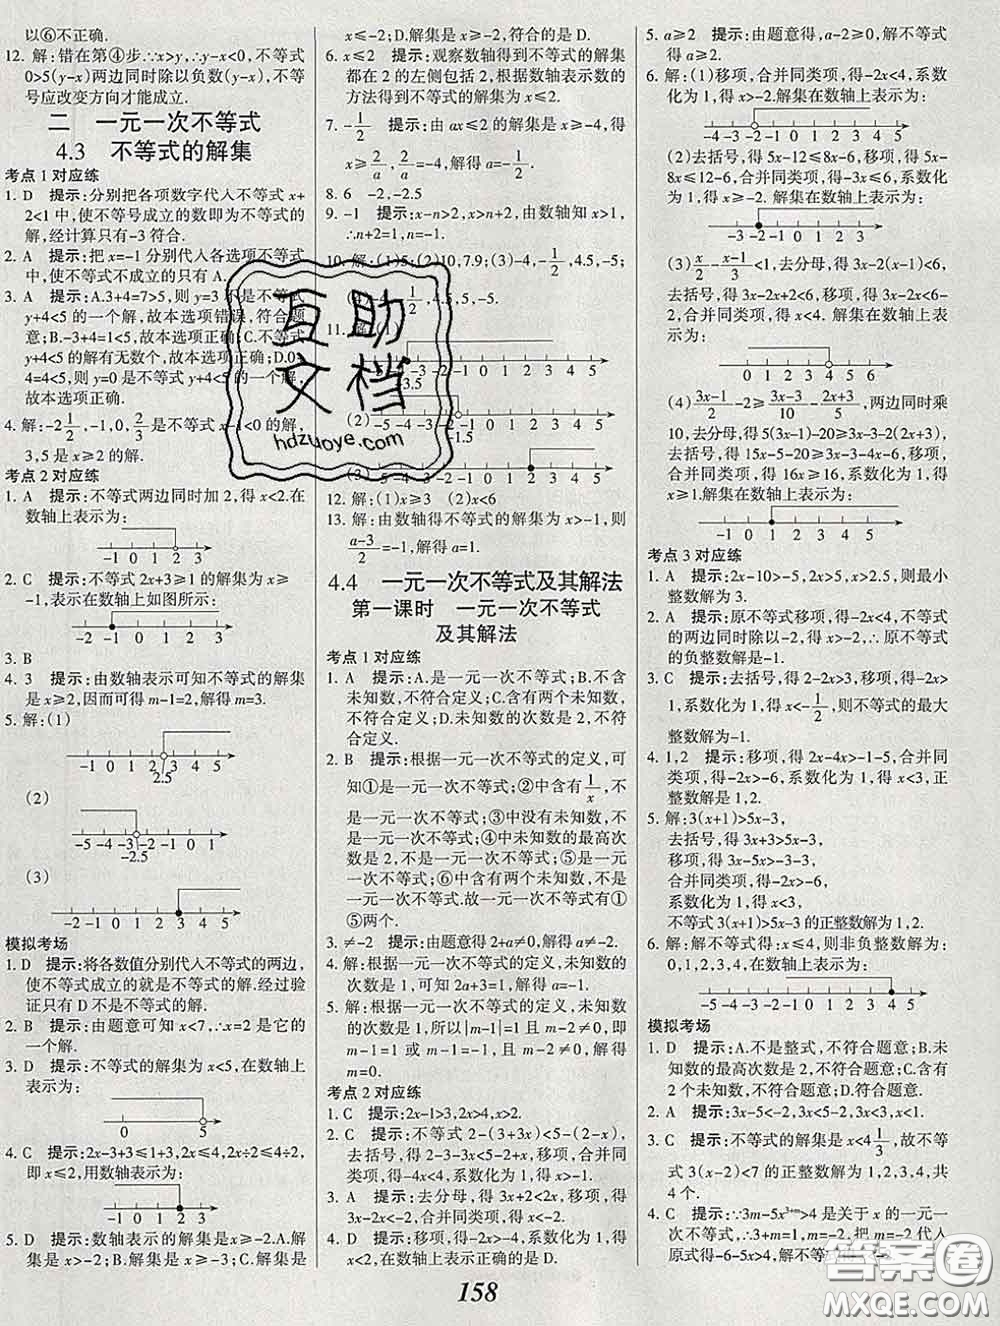 以⑥不正确.
12. 解:错在第④步∵x>y,∴y-x<0,不等式
0>5(y-x)两边同时除以负数(y-x),不等
号应改变方向才能成立.
二 一元一次不等式
4.3 不等式的解集
考点 1 对应练
1. D 提示:分别把各项数字代人不等式x+
2<1中,使不等号成立的数即为不等式的
解,经计算只有-3符合.
2. A 提示:把x=-1分别代人各选项不等式
中,使不等式不成立的只有 A.
3. A 提示:A.3+4=7>5,则 y=3不是不等式
y+4<5的一个解,故本选项错误,符合题
意;B.-3+4=1<5,故本选项正确;C.不等式
y+4<5的解有无数个,故本选项正确;D.0+
4=4<5,则 y=0是不等式 y+4<5的一个解,
故本选项正确.
4. 解:-2 1/2,-1,0,2/3是不等式 x-1<0 的解,
3,5是 x≥2 的解.
考点 2 对应练
1. A 提示:不等式两边同时加 2,得 x<2.在
数轴上表示为:
-1 0 1 2 3
2. C 提示:不等式 2x+3≥1 的解集为 x≥
-1,表示在数轴上如图所示:
-2 -1 0 1 2 3
3. B
4. 3 提示:由数轴表示可知不等式的解集
是 x≥2,因而可得 m-1=2,解得 m=3.
5. 解:(1)
-1 0 1 2 3 4 5
2.5
(2)
-5 -4 -3 -2 -1 0 1
-2.5
(3)
-2 -1 0 1 2 3 4 5
模拟考场
1. D 提示:将各数值分别代人不等式的两边,
使不等式成立的就是不等式的解.经过验
证只有 D 不是不等式的解.
2. B 提示:由题意可知 x<7,∴x=2是它的
一个解.
3. D 提示:不等式的解集为 x<5,在数轴上
表示为:
0 5
4. C 提示:2x-3+3≤1+3,2x≤4,2x÷2≤4÷2,
即 x≤2,用数轴表示为:
-1 0 1 2 3
5. D 提示:数轴表示的解集是 x≥-2.A.解
集是 x>-2;B.解集是 x≥-3;C.解集是
x≤-2;D.解集是 x≥-2,符合的是 D.
6. x≤2 提示:观察数轴得到不等式的解集
都在 2 的左侧包括 2,根据数轴表示数的
方法得到不等式的解集为 x≤2.
7. -1/2 提示:由 ax≤2 的解集是 x≥-4,得
x≥2/a,2/a=-4,解得 a=-1/2.
8. 6 -2,-2.5
9. -1 提示:x-n>2,x>n+2,由数轴知 x>1,
∴n+2=1,n=-1.
10. 解:(1)5;(2)10,7.9;(3)-4,-1/2,4.5,-5;
互助
文档
hdzuoye.com
(2)
(3)
12. 解:(1)x≥3 (2)x<6
13. 解:由数轴得不等式的解集为 x>-1,则
a-3/2=-1,解得 a=1.
4.4 一元一次不等式及其解法
第一课时 一元一次不等式
及其解法
考点 1 对应练
1. A 提示:A.是一元一次不等式;B.不含
未知数,不符合定义;C.含有两个未知数,
不符合定义;D.未知数的次数是 2,不符
合定义.
2. B 提示:根据一元一次不等式的定义,可
知①是一元一次不等式;②中含有1/x,不
是一元一次不等式;③中没有未知数,不
是一元一次不等式;④中未知数的最高次
数是 2,不是一元一次不等式;⑤是一元
一次不等式;⑥中含有两个未知数,不是
一元一次不等式.故是一元一次不等式有①
⑤两个.
3. ≠-2 提示:由题意得 2+a≠0,解得 a≠-2.
4. 解:根据一元一次不等式的定义,未知数
的次数是 1,可知 2a+3=1,解得 a=-1.
5. 解:根据一元一次不等式的定义,未知数
的次数是 1,所以|m-1|=1且 m-2≠0,即
m-1=1或 m-1=-1,且 m-2≠0,解得
m=0.
考点 2 对应练
1. C 提示:2x-1>3,2x>4,x>2.
2. C 提示:不等式 2-(3+3x)<5-(2-x),去
括号,得 2-3-3x<5-2+x,移项,合并同
类项,得-4x<4,系数化为 1,得 x>-1.
3. A 提示:去分母,得 3x+2<2x,移项,得
3x-2x<-2,合并同类项,得 x<-2.
4. D 提示:移项,合并同类项,得 x≥-2,
在数轴上表示正确的是 D.
5. a≥2 提示:由题意得,a-2≥0,解不等式
得 a≥2.
6. 解:(1)移项,合并同类项,得-2x<4,系数
化为 1,得 x>-2.解集在数轴上表示为:
-3 -2 -1 0 1 2 3 4
(2)去括号,得 5x-12≤8x-6,移项,得 5x-
8x≤12-6,合并同类项,得-3x≤6,系数化
为 1,得 x≥-2. 解集在数轴上表示为:
-3 -2 -1 0 1 2 3 4 5
(3)x/2-x-1/3<1,去分母,得 3x-2(x-1)<6,
去括号,得 3x-2x+2<6,移项,得 3x-2x<6-
2,合并同类项,得 x<4. 解集在数轴上表
示为:
0 1 2 3 4 5 6
(4)3x-1/2-2≥3x-3/10-2x+3/5,两边同时乘
10,去分母,得 5(3x-1)-20≥3x-3-2(2x+
3),去括号,得 15x-5-20≥3x-3-4x-6,移
项,合并同类项,得 16x≥16,系数化为 1,得
x≥1.解集在数轴上表示为:
-1 0 1 2 3 4 5
考点 3 对应练
1. A 提示:2x-10>-5,2x>5,x>2.5,则最小
整数解为 3.
2. A 提示:原不等式移项,得-2x<4,不等式
的两边同时除以-2,得 x>-2,∴原不等式
的负整数解是-1.
3. C 提示:去括号,得 2-2x>3,移项,得-2x>
1,系数化为 1,得 x<-1/2,则不等式的最大
整数解为-1.
4. 1,2 提示:移项,得 2x-4x>-1-5,合并同
类项,得-2x>-6,系数化为 1,得 x<3,正
整数解是 1,2.
5. 解:3(x+1)>5x-3,
去括号,得 3x+3>5x-3,
移项,得 3x-5x>-3-3,
合并同类项,得-2x>-6,
系数化为 1,得 x<3,
不等式 3(x+1)>5x-3 的正整数解为 1,2.
6. 解:解不等式得:x≤4,则非负整数解为:
0,1,2,3,4,在数轴上表示为:
-5 -4 -3 -2 -1 0 1 2 3 4 5
模拟考场
1. D 提示:A.不是整式,不符合题意;B.未
知数的最高次数是 2,不符合题意;C.含有
2 个未知数,不符合题意;D.符合题意.
2. A 提示:3x-5<-2,3x<5-2,3x<3,x<1.
3. C 提示:不等式的解集是 x<4 1/3,故不等
式 3(x-2)<7 的正整数解为 1,2,3,4,共
4 个.
4. C 提示:∵3m-5x³⁺ᵐ>4 是关于 x 的一元一
次不等式,∴3+m=1,m=-2. 把 m=-2代人
原式得-6-5x>4,
答案圈
MXQE.COM
158